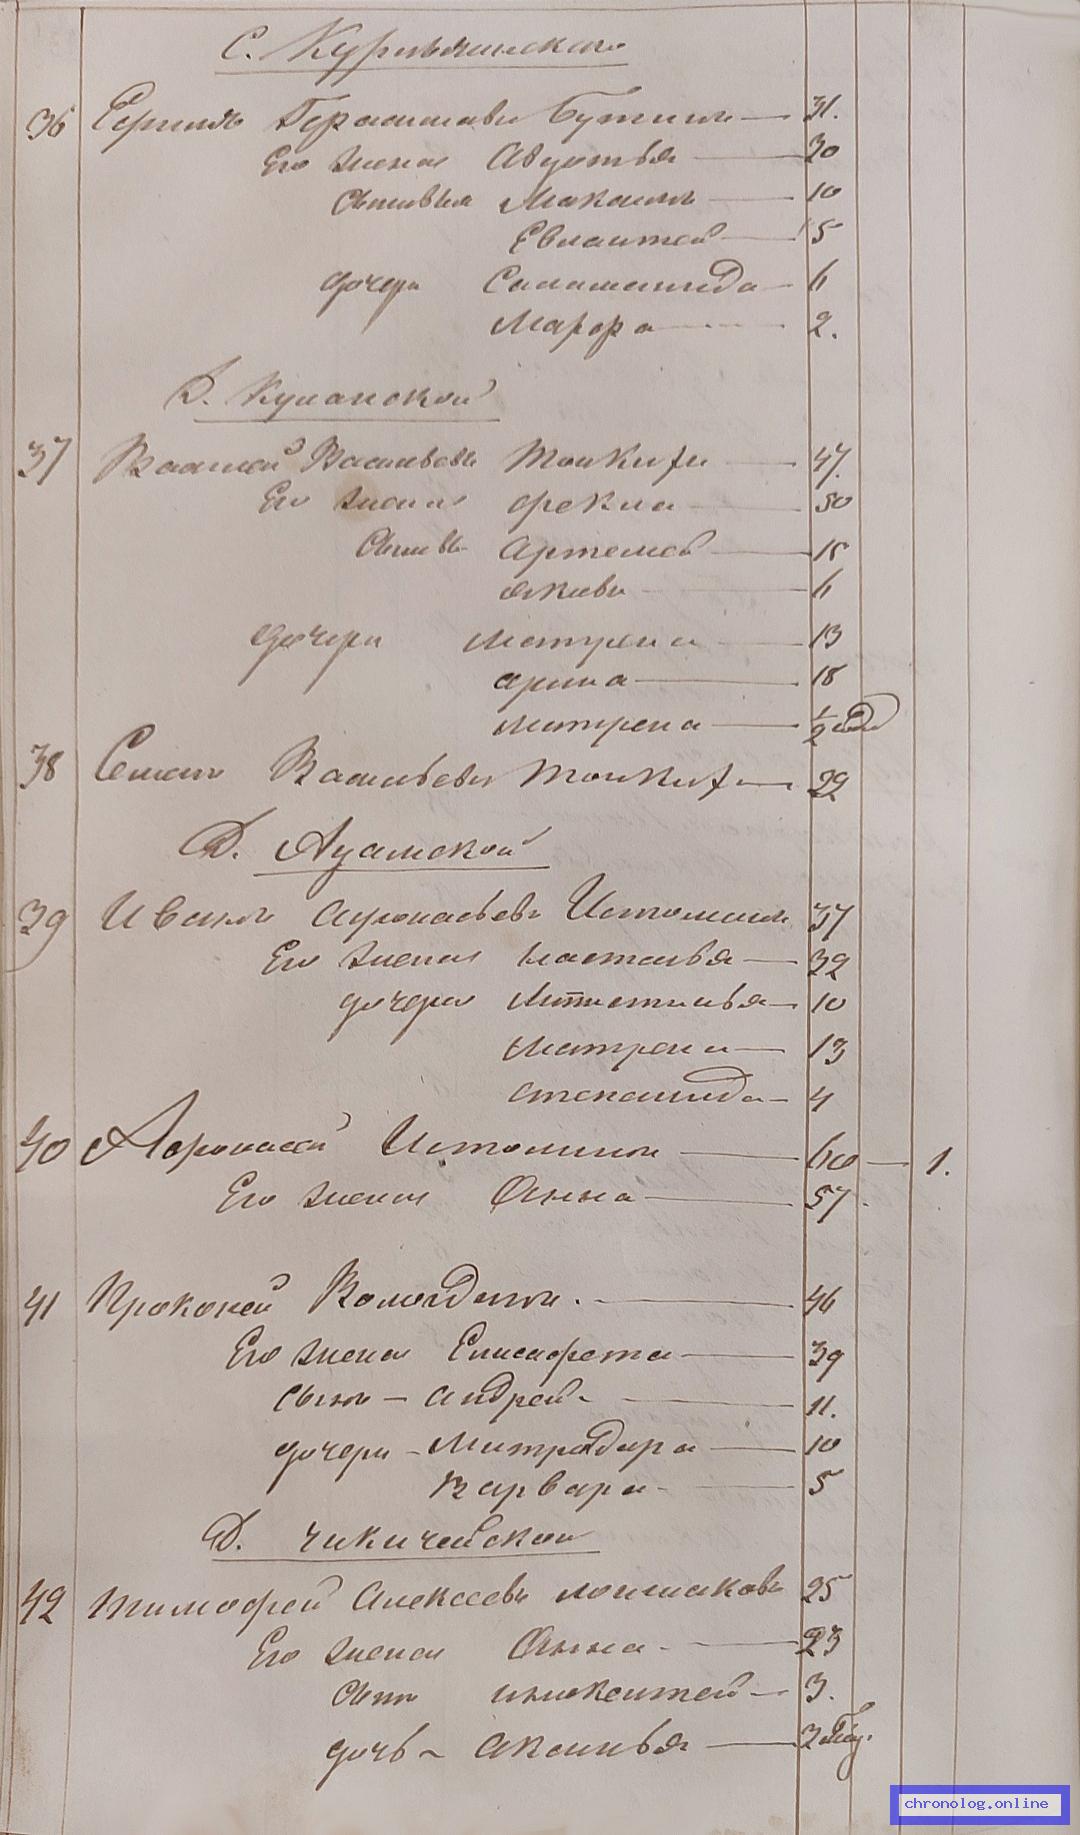 36 Герасимовъ Бутинъ — 31.
Его жена Авдотья — 30
Сыновья Максимъ — 10
5
дочери Саломанида — 6
Марфа — 2.
37 Василей Васильевъ Тонкихъ — 47.
Его жена Фекла — 50
Сыновья Артемей — 15
Яковъ — 6
дочери Матрена — 13
Арина — 18
Матрена — 1/2 год
38 Семенъ Васильевъ Тонкихъ — 22
Д. Аузамской
39 Иванъ Афонасьевъ Истоминъ 37
Его жена Настасья — 32
дочери — 10
Матрена — 13
Степанида — 4
40 Афонасей Истоминъ — 60 — 1.
Его жена Анна — 57
41 Прокопей Вологдинъ. — 46
Его жена Елисафета — 39
Сынъ — Андрей — 11.
дочери — Митродора — 10
Варвара — 5
Д. Чикичейской
42 Тимофей Алексеевъ Лоншаковъ 25
Его жена Анна — 23
Сынъ Инокентей — 3.
дочь — Аксинья — 2
chronolog.online